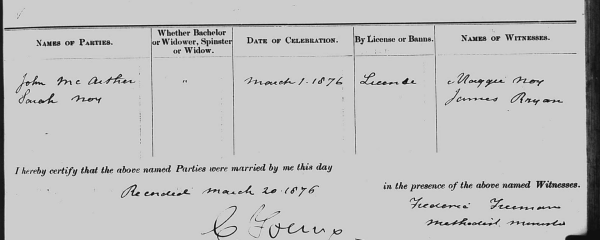 NAMES OF PARTIES.
Whether Bachelor or Widower, Spinster or Widow.
DATE OF CELEBRATION.
By License or Banns.
NAMES OF WITNESSES.
John McArthur " March 1. 1876 License Maggie Nox
Sarah Nox James Bryan
I hereby certify that the above named Parties were married by me this day
Recorded March 20 1876
in the presence of the above named Witnesses.
Frederic Freeman
Methodist Minister